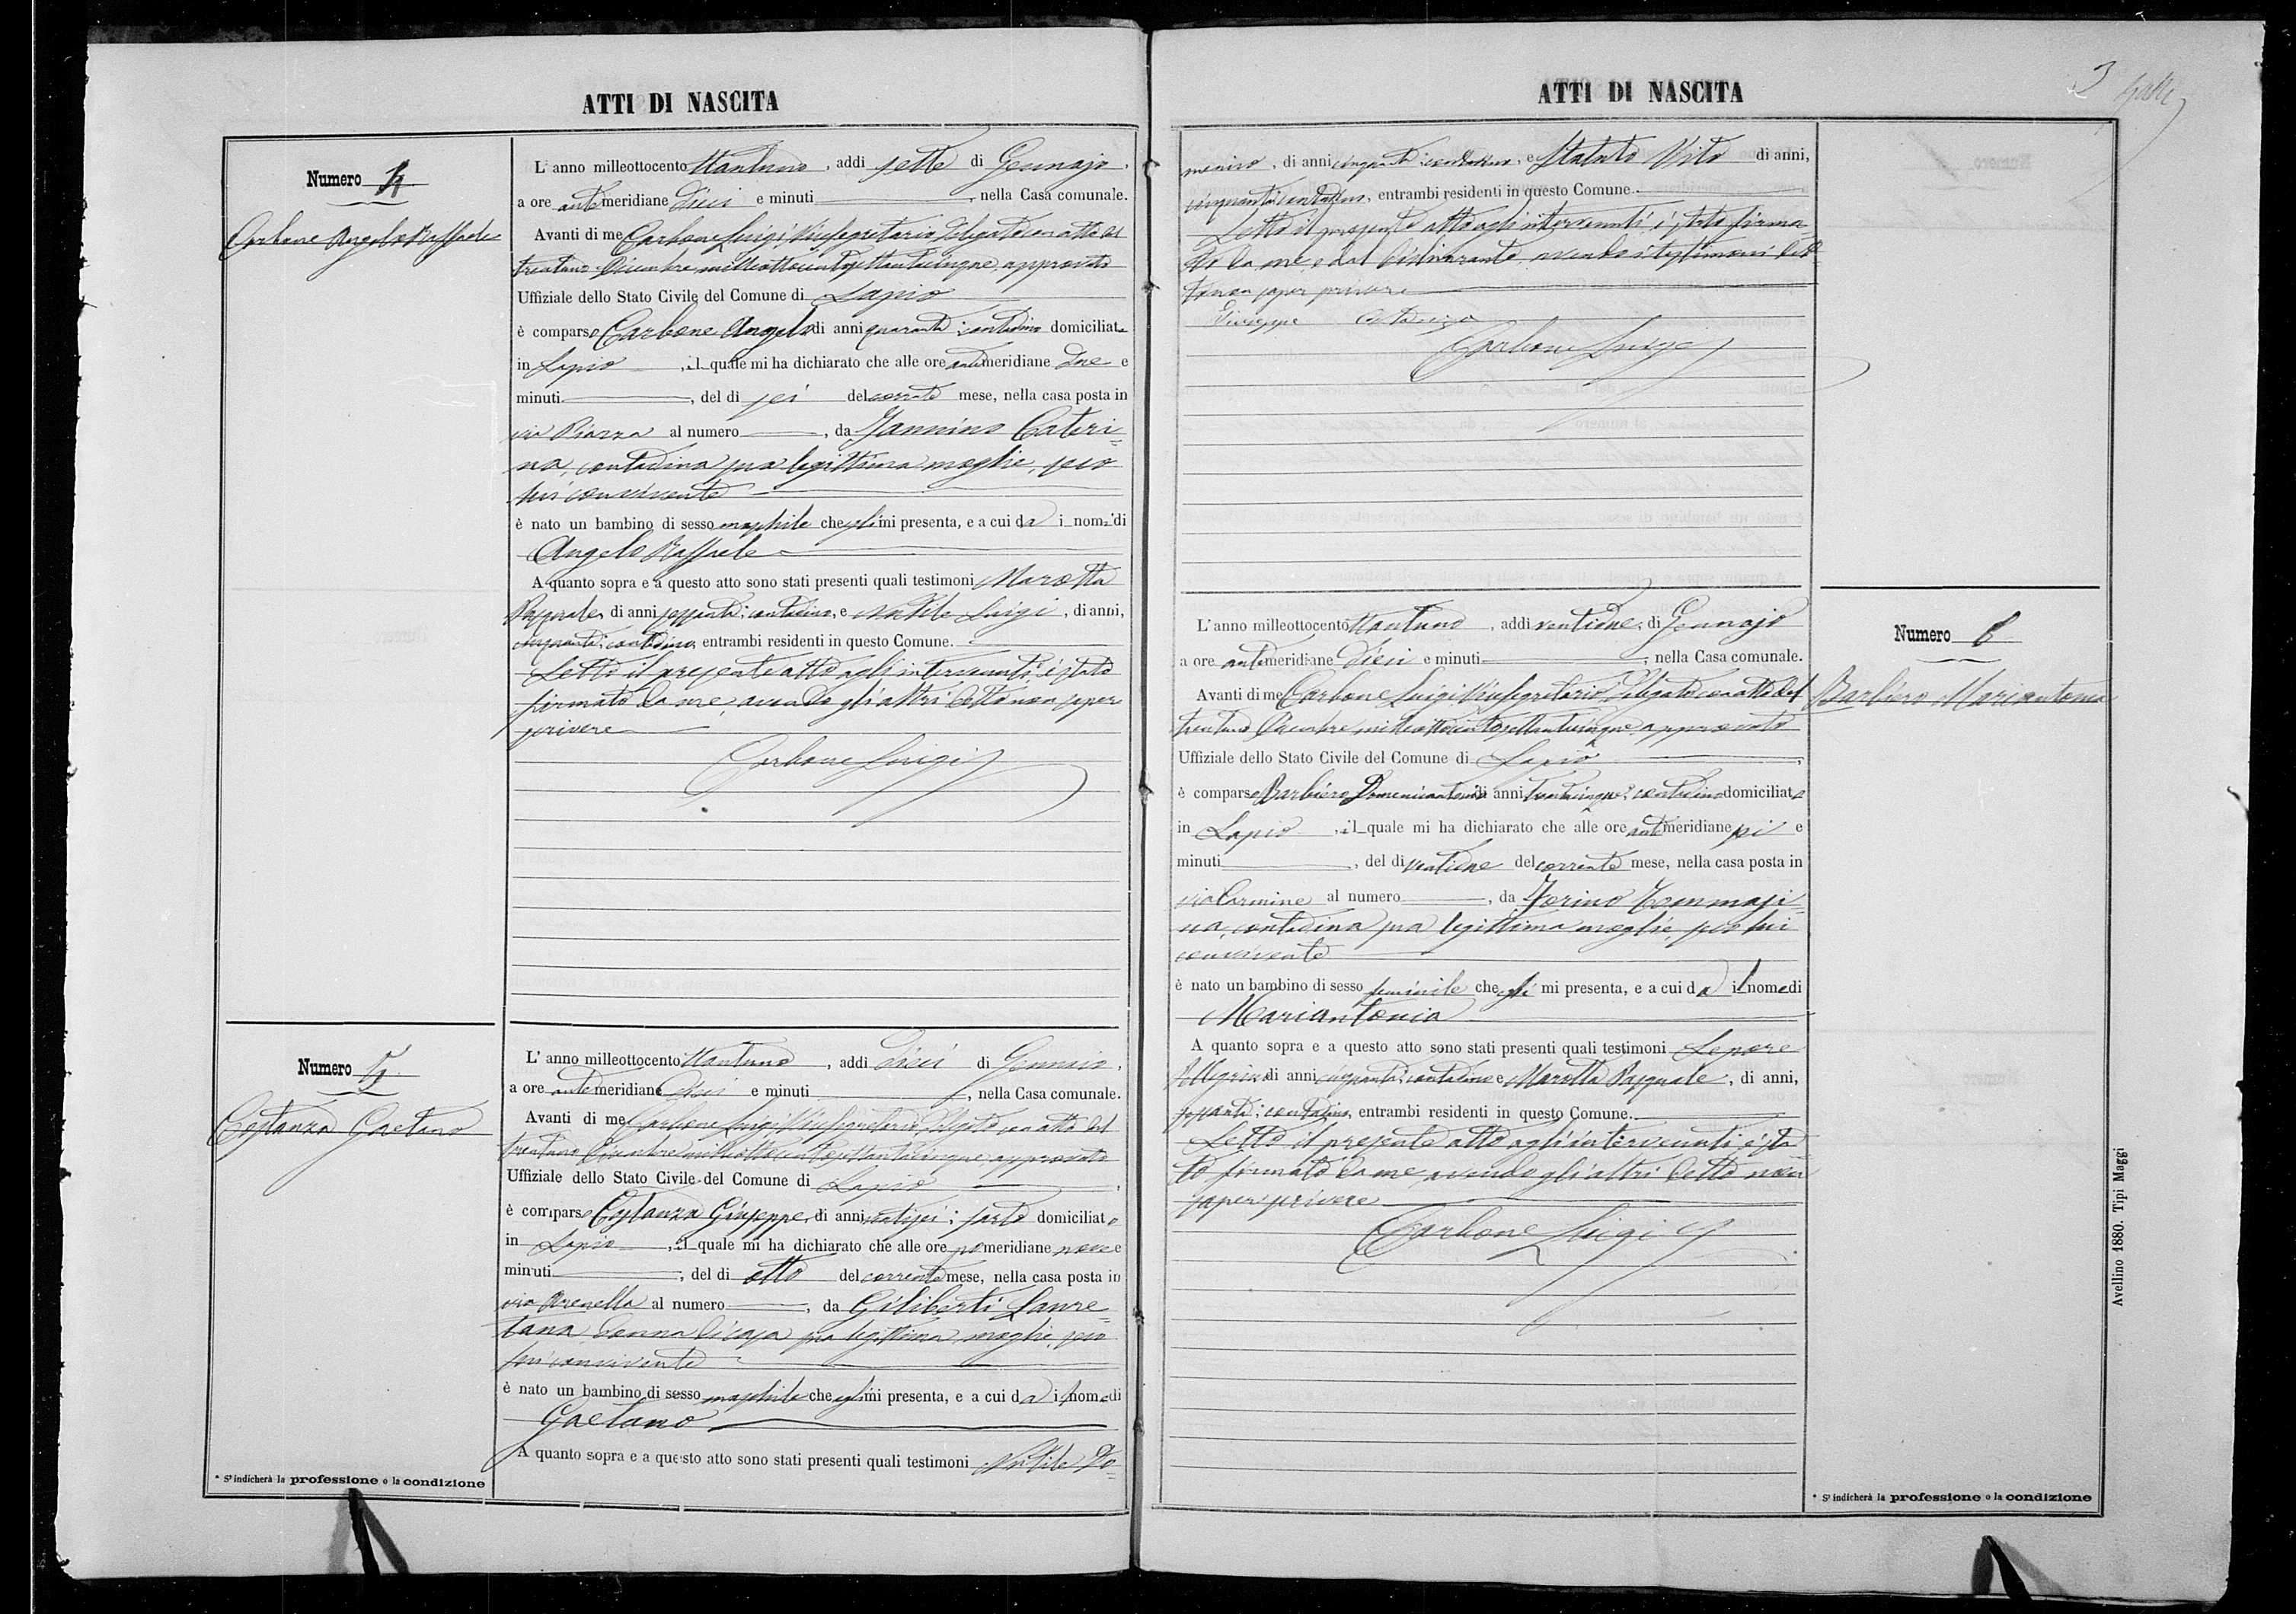 ATTI DI NASCITA
Numero 4
Carbone Angelo Raffaele
L'anno milleottocento ottantuno, addì sette di Gennajo,
a ore antemeridiane dieci e minuti, nella Casa comunale.
Avanti di me Carbone Luigi Vicesegretario delegato con atto del
trentuno Dicembre milleottocentosettantacinque, approvato
Uffiziale dello Stato Civile del Comune di Lapio
è comparso Carbone Angelo di anni quaranta; contadino domiciliato
in Lapio, il quale mi ha dichiarato che alle ore antimeridiane due e
minuti, del dì sei del corrente mese, nella casa posta in
via Piazza al numero, da Jannino Cateri=
na, contadina sua legittima moglie, seco
lui convivente
è nato un bambino di sesso maschile che egli mi presenta, e a cui dà i nomi di
Angelo Raffaele
A quanto sopra e a questo atto sono stati presenti quali testimoni Marotta
Pasquale, di anni sessanta; contadino, e Natile Luigi, di anni,
cinquanta; contadino, entrambi residenti in questo Comune.
Letto il presente atto agli intervenuti è stato
firmato da me, avendo gli altri detto non saper
scrivere
Carbone Luigi
Numero 5
Costanza Gaetano
L'anno milleottocento ottantuno, addì dieci di Gennaio,
a ore antemeridiane dieci e minuti, nella Casa comunale.
Avanti di me Carbone Luigi Vicesegretario, delegato con atto del
trentuno Dicembre milleottocentosettantacinque approvato
Uffiziale dello Stato Civile del Comune di Lapio,
è comparso Costanza Giuseppe, di anni ventisei; sarto domiciliato
in Lapio, il quale mi ha dichiarato che alle ore pomeridiane nove e
minuti, del dì otto del corrente mese, nella casa posta in
via Arenella al numero, da Giliberti Laure=
tana donna di casa sua legittima moglie, seco
lui convivente
è nato un bambino di sesso maschile che egli mi presenta, e a cui dà il nome di
Gaetano
A quanto sopra e a questo atto sono stati presenti quali testimoni Natile Do=
* Si indicherà la professione o la condizione
ATTI DI NASCITA
3
menico, di anni cinquanta; contadino, e Statuto Vito di anni,
cinquanta contadino, entrambi residenti in questo Comune.
Letto il presente atto agli intervenuti è stato firma=
to da me e dal dichiarante avendo i testimoni det=
to non saper scrivere
Giuseppe Costanza
Carbone Luigi
Numero 6
Barbiero Mariantonia
L'anno milleottocento ottantuno, addì ventidue, di Gennajo
a ore antemeridiane dieci e minuti, nella Casa comunale.
Avanti di me Carbone Luigi Vicesegretario, delegato con atto del
trentuno Dicembre milleottocentosettantacinque approvato
Uffiziale dello Stato Civile del Comune di Lapio,
è comparso Barbiero Domenicantonio di anni trentacinque; contadino domiciliato
in Lapio, il quale mi ha dichiarato che alle ore antimeridiane sei e
minuti, del dì ventidue del corrente mese, nella casa posta in
via Carmine al numero, da Forino Tommasi=
na, contadina sua legittima moglie, seco lui
convivente
è nato un bambino di sesso feminile che egli mi presenta, e a cui dà il nome di
Mariantonia
A quanto sopra e a questo atto sono stati presenti quali testimoni Lepore
Pellegrino di anni cinquanta; contadino e Marotta Pasquale, di anni,
sessanta; contadino, entrambi residenti in questo Comune.
Letto il presente atto agli intervenuti è sta
to firmato da me, avendo gli altri detto non
saper scrivere
Carbone Luigi
* Si indicherà la professione o la condizione
Avellino 1880. Tipi Maggi